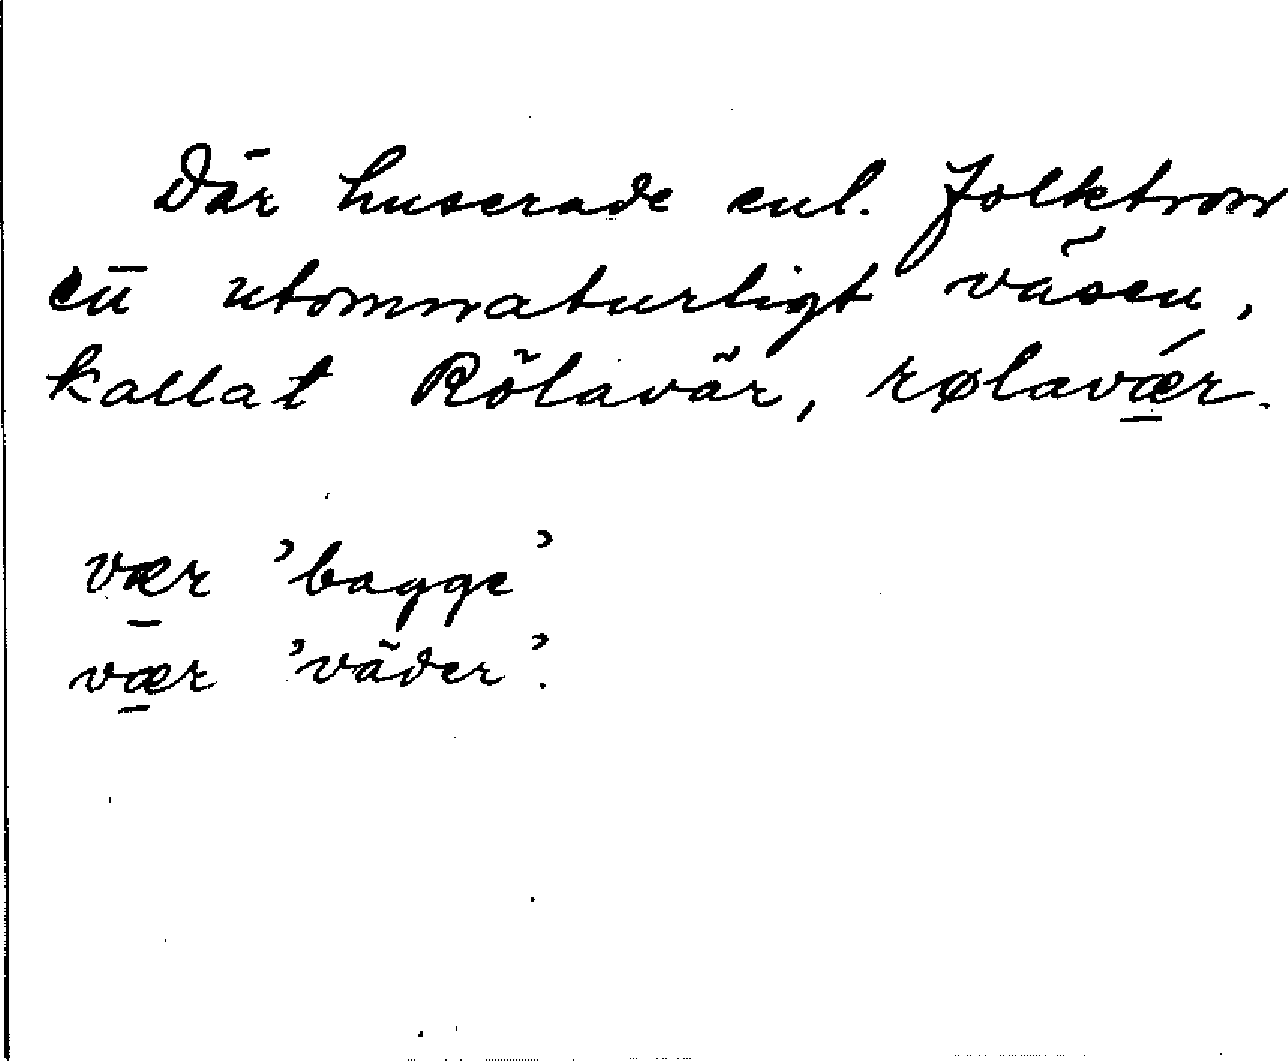 Där huserade enl. folktron
ett utomnaturligt väsen,
kallat Rölavär, rølavǽr.
vær 'bagge'
vær 'väder'.